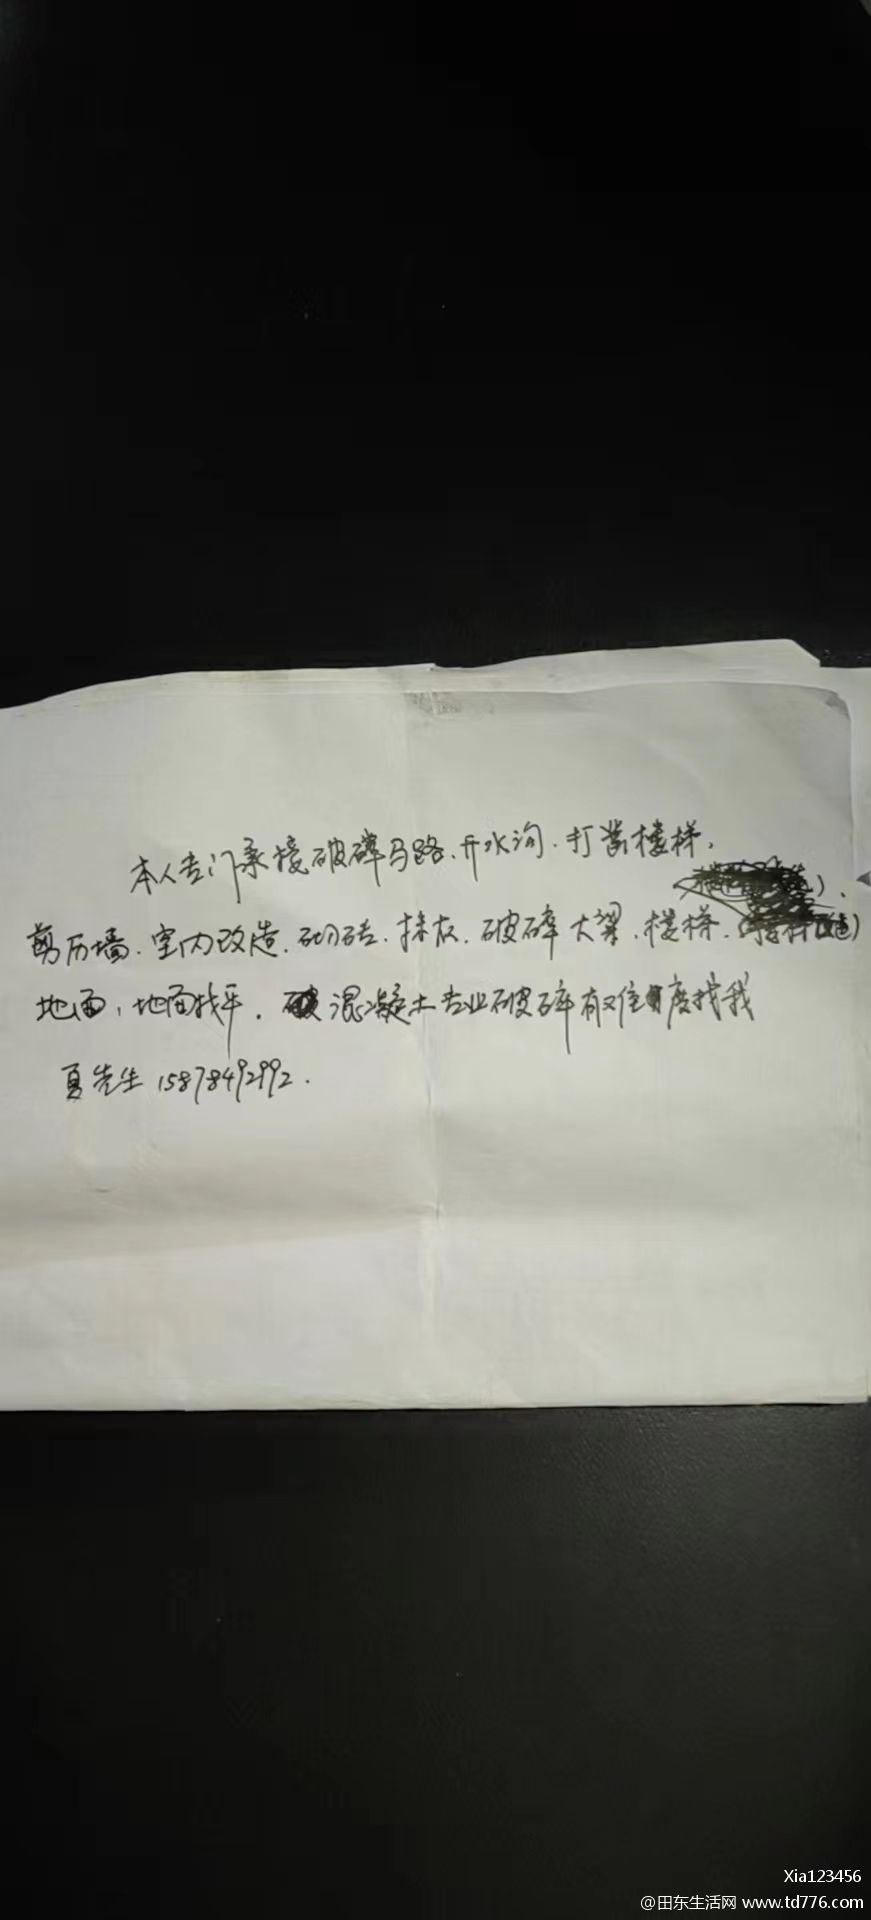 本人专门承接破碎马路、开水沟、打凿楼梯,
剪历墙、室内改造、砌砖、抹灰、破碎大梁、楼梯、
地面,地面找平. 混凝土专业破碎有难度找我
夏先生 15878492992.
Xia123456
@田东生活网 www.td776.com